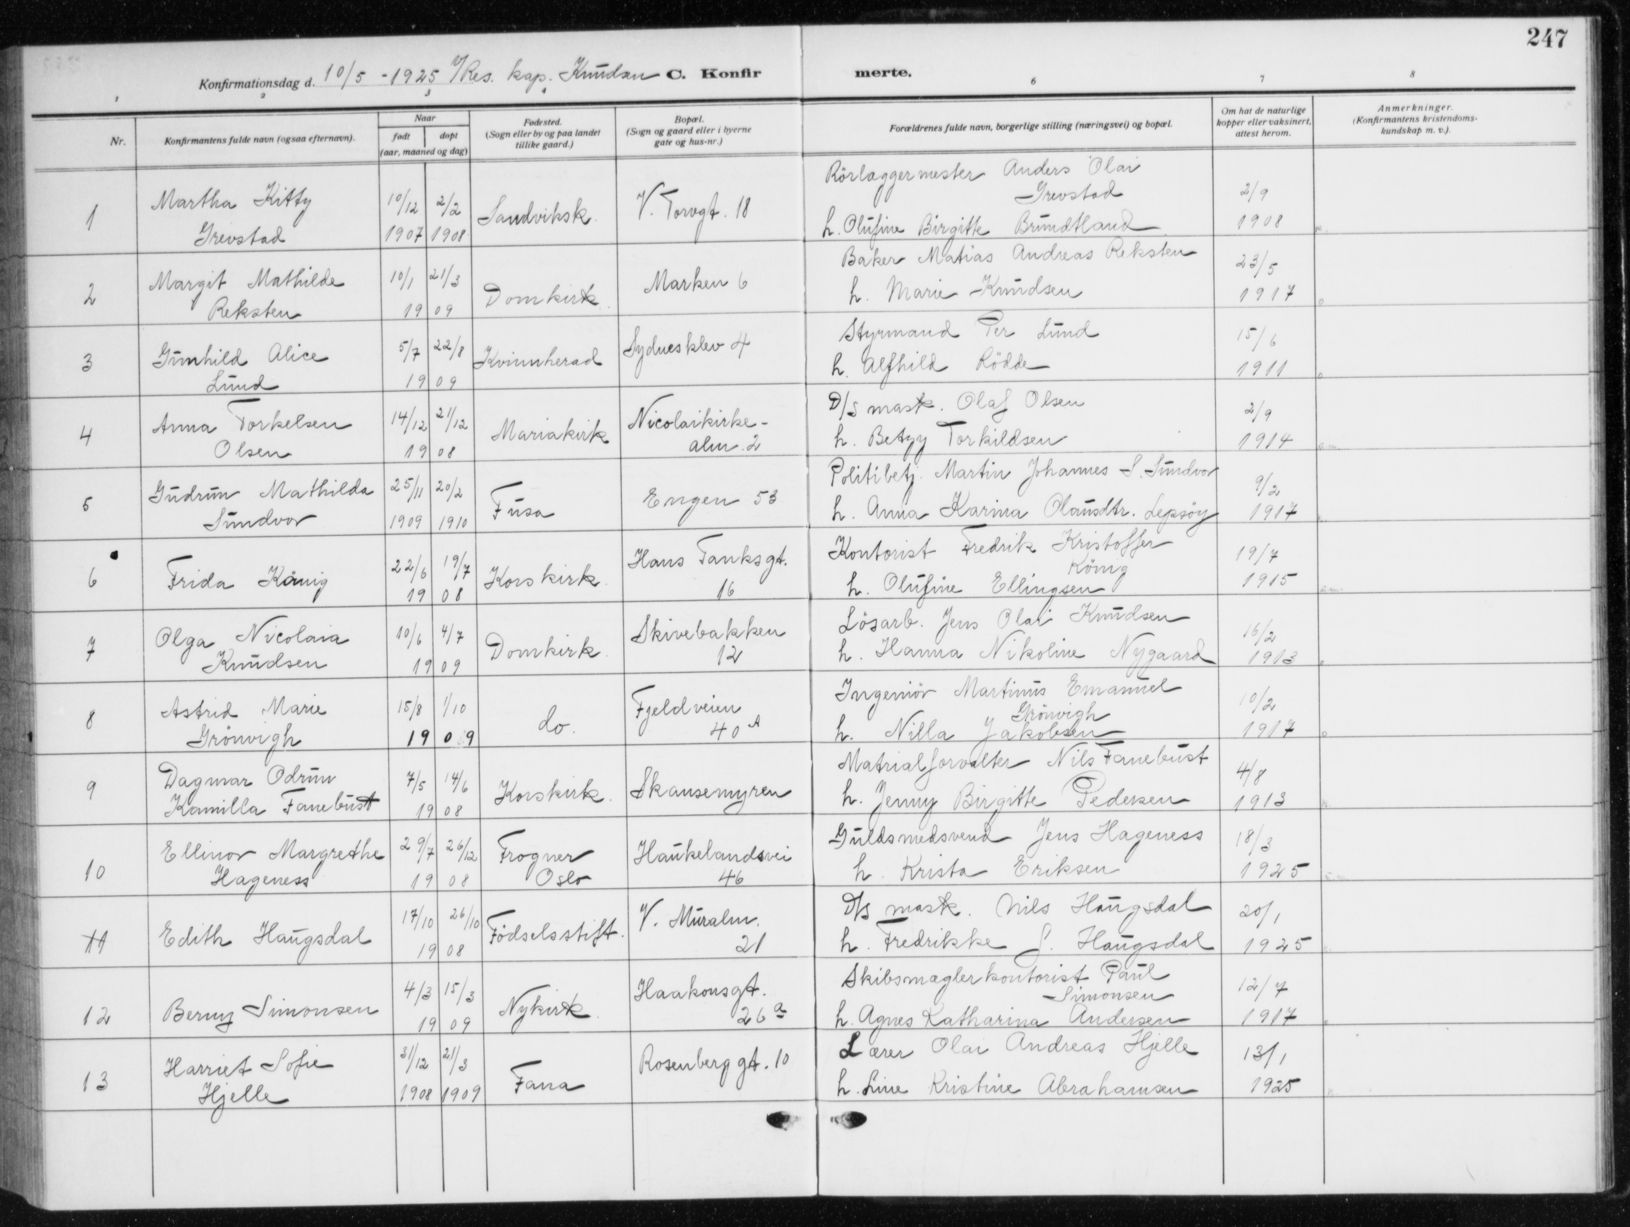 247
Konfirmationsdag d. 10/5 - 1925 v/ Res. kap. Knudsen C. Konfirmerte.
1 2 3 4 6 7 8
Nr. Konfirmantens fulde navn (ogsaa efternavn). Naar født døpt (aar, maaned og dag) Fødested. (Sogn eller by og paa landet tillike gaard.) Bopæl. (Sogn og gaard eller i byerne gate og hus-nr.) Forældrenes fulde navn, borgerlige stilling (næringsvei) og bopæl. Om hat de naturlige kopper eller vaksinert, attest herom. Anmerkninger. (Konfirmantens kristendomskundskap m. v.).
1 Martha Kitty Grevstad 10/12 1907 2/2 1908 Sandviksk. V. Torvgt. 18 Rörlæggermester Anders Olai Grevstad h. Olufine Birgitte Brundtland 2/9 1908
2 Margit Mathilde Reksten 10/1 21/3 1909 Domkirk. Marken 6 Baker Matias Andreas Reksten h. Marie Knudsen 23/5 1917
3 Gunhild Alice Lund 5/7 22/8 1909 Kvinnherad Sydnesklev 4 Styrmand Per Lund h. Alfhild Rödde 15/6 1911
4 Anna Torkelsen Olsen 14/12 21/12 1908 Mariakirk Nicolaikirke-alm. 2 D/S mask. Olaf Olsen h. Betzy Torkildsen 2/9 1914
5 Gudrun Mathilda Sundvor 25/11 1909 20/2 1910 Fusa Engen 53 Politibetj. Martin Johannes S. Sundvor h. Anna Karina Olausdtr. Lepsöy 9/2 1917
6 Frida König 22/6 19/7 1908 Korskirk. Hans Tanksgt. 16 Kontorist Fredrik Kristoffer König h. Olufine Ellingsen 19/7 1915
7 Olga Nicolaia Knudsen 10/6 4/7 1909 Domkirk. Skivebakken 12 Lösarb. Jens Olai Knudsen h. Hanna Nikoline Nygaard 16/2 1913
8 Astrid Marie Grönvigh 15/8 1/10 1909 do. Fjeldveien 40 A Ingeniör Martinus Emanuel Grönvigh h. Nilla Jakobsen 10/2 1917
9 Dagmar Odrun Kamilla Fanebust 7/5 14/6 1908 Korskirk. Skansemyren Matrialforvalter Nils Fanebust h. Jenny Birgitte Pedersen 4/8 1913
10 Ellinor Margrethe Hageness 29/7 26/12 1908 Frogner Oslo Haukelandsvei 46 Guldsmedsvend Jens Hageness h. Krista Eriksen 18/3 1925
11 Edith Haugsdal 17/10 26/10 1908 Födselsstift. V. Muralm. 21 D/S mask. Nils Haugsdal h. Fredrikke S. Haugsdal 20/1 1925
12 Berny Simonsen 4/3 15/3 1909 Nykirk. Haakonsgt. 26 a Skibsmæglerkontorist Paul Simonsen h. Agnes Katharina Andersen 12/7 1917
13 Harriet Sofie Hjelle 31/12 1908 21/3 1909 Fana Rosenberggt. 10 Lærer Olai Andreas Hjelle h. Line Kristine Abrahamsen 13/1 1925